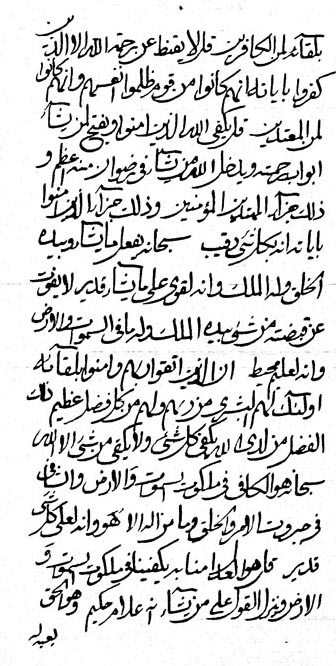 بلقائه لمن الكافرين قل لا يقنط عن رحمة الله الا الذين
كفروا باياته انهم كانوا من قوم ظلموا انفسهم وانهم كانوا
لمن المعتدين قل يكفى الله الذين امنوا ويفتح لمن يشاء
ابواب رحمته ويدخل الله من يشاء فى رضوان منه اعظم و
ذلك جزاء المؤمنين وذلك جزاء الذين امنوا
باياته انه بكل شئ رقيب سبحانه يفعل ما يشاء وبيده
الخلق وله الملك وانه لقوى على ما يشاء قدير لا يفوت
عن قبضته من شئ بيده الملك وله ما فى السموات والارض
وانه لعليم محيط ان الذين اتقوا ربهم وامنوا بلقائه
اولئك لهم البشرى من ربهم ولهم من كل فضل عظيم ذلك
الفضل من لدى الله يكفى كل شئ ولا يكفى من شئ الا الله
سبحانه هو الكافى فى ملكوت السموات والارض وانه
فى جبروت الامر والخلق وما من اله الا هو وانه لعلى كل شئ
قدير قل هو الله امنا به يكفينا فى ملكوت السموات و
الارض وينزل القول على من يشاء انه علام حكيم وهو الحق
بعباده